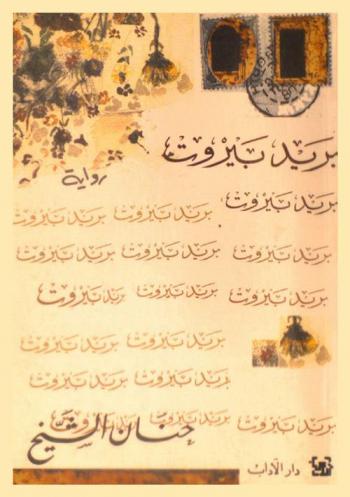 بَريْد بَيْرْوُتْ
رواية
بَريْد بَيْرْوُتْ
بَريْد بَيْرْوُتْ بَريْد بَيْرْوُتْ
بَريْد بَيْرْوُتْ بَريْد بَيْرْوُتْ بَريْد بَيْرْوُتْ
بَريْد بَيْرْوُتْ بَريْد بَيْرْوُتْ بَريْد بَيْرْوُتْ
بَريْد بَيْرْوُتْ بَريْد بَيْرْوُتْ
بَريْد بَيْرْوُتْ بَريْد بَيْرْوُتْ
بَريْد بَيْرْوُتْ بَريْد بَيْرْوُتْ بَريْد بَيْرْوُتْ
حنَان الشَّيخ
دار الآداب